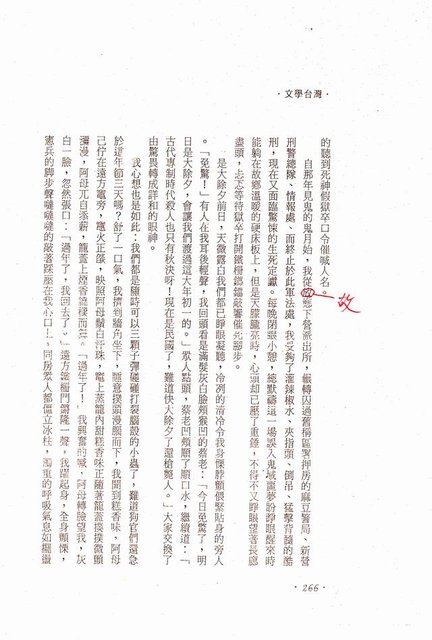 ．文學台灣．
的聽到死神假獄卒口令催喊人名。
自那年見鬼的鬼月始，我從鄉下營派出所，輾轉囚過舊稱區署押房的麻豆警局、新營
故
刑警總隊、情報處、而終止於此軍法處，我受夠了灌辣椒水、夾指頭、倒吊、猛擊背髓的酷
刑，現在又面臨驚悚的生死定讞。每晚閉眼小憩，總默禱這一場誤入鬼域噩夢盼睜眼醒來時
能躺在故鄉溫暖的硬床板上，但是天朦朧亮時，心頭卻已壓了重錘，不得不又睜眼望著長廊
盡頭，忐忑等待獄卒打開鐵柵鎯鐺敲響催死腳步。
是大除夕前日，天微露白我們都已睜眼凝聽，冷冽的清冷令我身悚脖顫偎緊貼身的旁人
。「免驚！」有人在我耳後輕聲，我回頭看是滿髮灰白臉頰猴凹的蔡老：「今日免驚了，明
日是大除夕，會讓我們渡過這大年初一的。」眾人點頭，蔡老凹頰順了順口水，繼續道：「
古代專制時代殺人也只有秋決呀！現在是民國了，難道快大除夕了還槍斃人。」大家交換了
由驚畏轉成詳和的眼神。
我心想也是如此；我們都是隨時可以三顆子彈碰碰打裂腦殼的小蟲了，難道狗官們還急
於這年節三天嗎？舒了一口氣，我擠到牆角坐下，睡意撲頭漫臉而下，我聞到糕香味，阿母
己佇在遠方竈旁，竈火正漾，映照阿母鬚白汗珠，竈上蒸籠內甜糕香味正隨著籠蓋撲撲微顫
瀰漫，阿母兀自添薪，籠蓋上煙香繞樑而舞。「過年了！」我興奮的喊，阿母轉臉望我，灰
白一臉，忽然張口：「過年了，我回去了。」遠方鐵柵門鏘隆一聲。我躍起身，全身顫慄，
憲兵的腳步聲噠噠噠的敲著踩壓在我心口上。同房眾人都僵立冰柱，濁重的呼吸氣息如繃
．266．